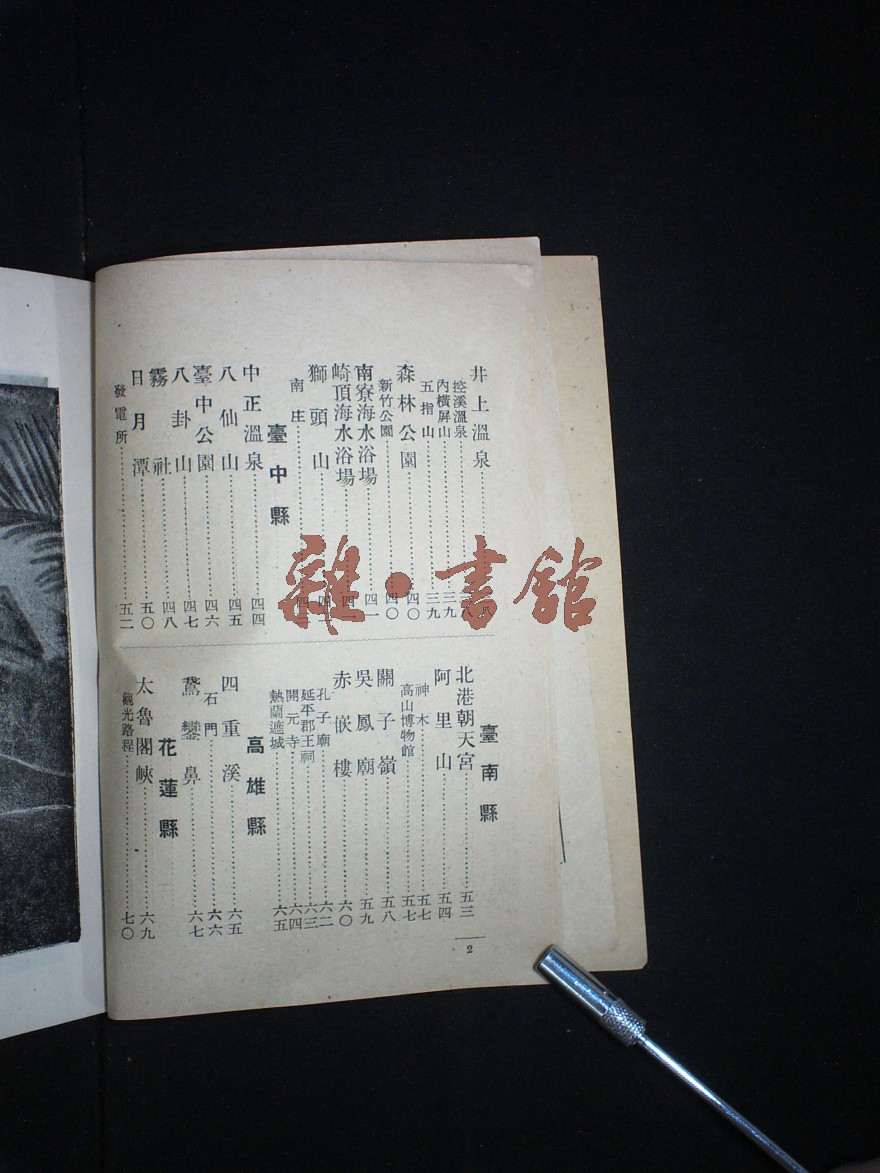 井上溫泉
控溪溫泉
內橫屏山……三九
五指山……三九
森林公園……四〇
新竹公園……四〇
南寮海水浴場……四一
崎頂海水浴場
獅頭山
南庄
臺中縣
中正溫泉……四四
八仙山……四五
臺中公園……四六
八卦山……四七
霧社……四八
日月潭……五〇
發電所……五二
臺南縣
北港朝天宮……五三
阿里山……五四
神木……五七
高山博物館……五七
關子嶺……五八
吳鳳廟……五九
赤嵌樓……六〇
孔子廟……六二
延平郡王祠……六三
開元寺……六四
熱蘭遮城……六五
高雄縣
四重溪……六五
石門……六六
鵞鑾鼻……六七
花蓮縣
太魯閣峽……六九
觀光路程……七〇
2
雜·書館